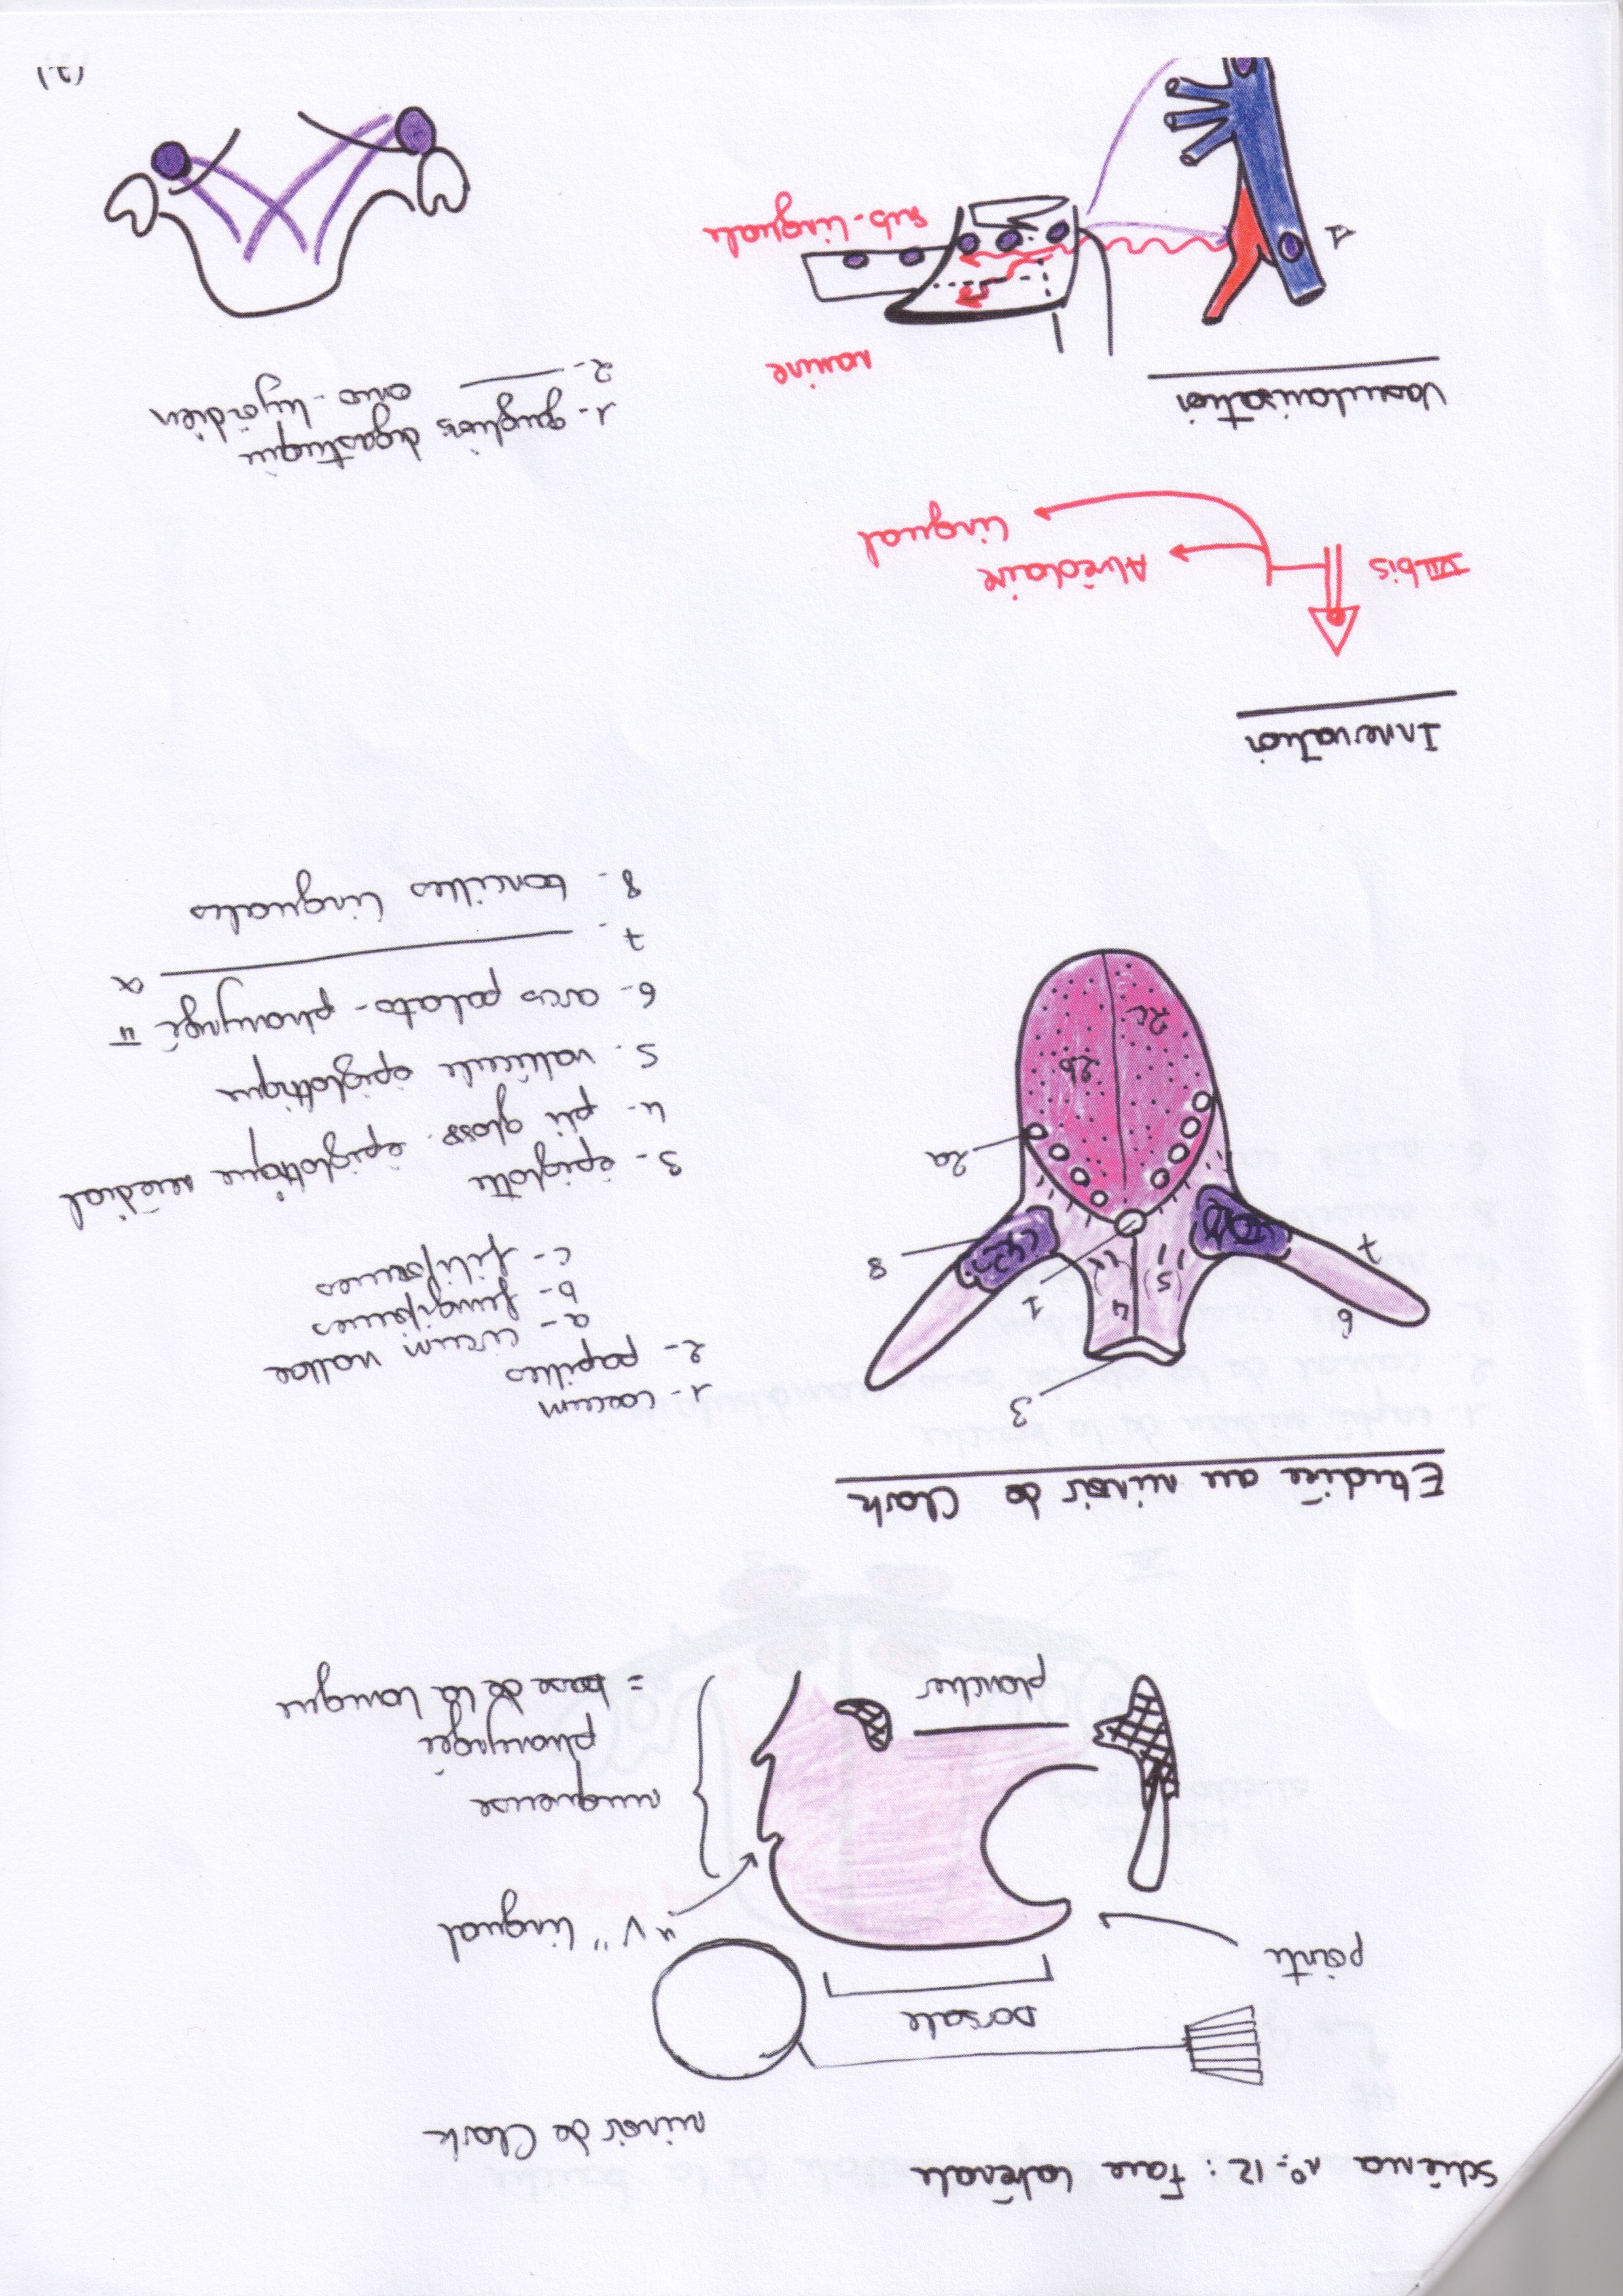 Schéma n°: 12 : Face latérale
miroir de Clark
Dorsale
pointe
"V" lingual
muqueuse
pharyngée
= base de la langue
plancher
Etudiée au miroir de Clark
3
1
4
(5)
6
7
8
2a
2b
2c
1- coecum
2- papilles
a- circum vallae
b- fungiformes
c- filiformes
3- épiglotte
4- pli gloss- épiglottique médial
5- vallécule épiglottique
6- arcs palato-pharyngé "
7-
8- tonsilles linguales
Innervation
VII bis
Alvéolaire
Lingual
Vascularisation
ranine
sub-linguale
1
1- ganglions digastrique
2- omo-hyoïdien